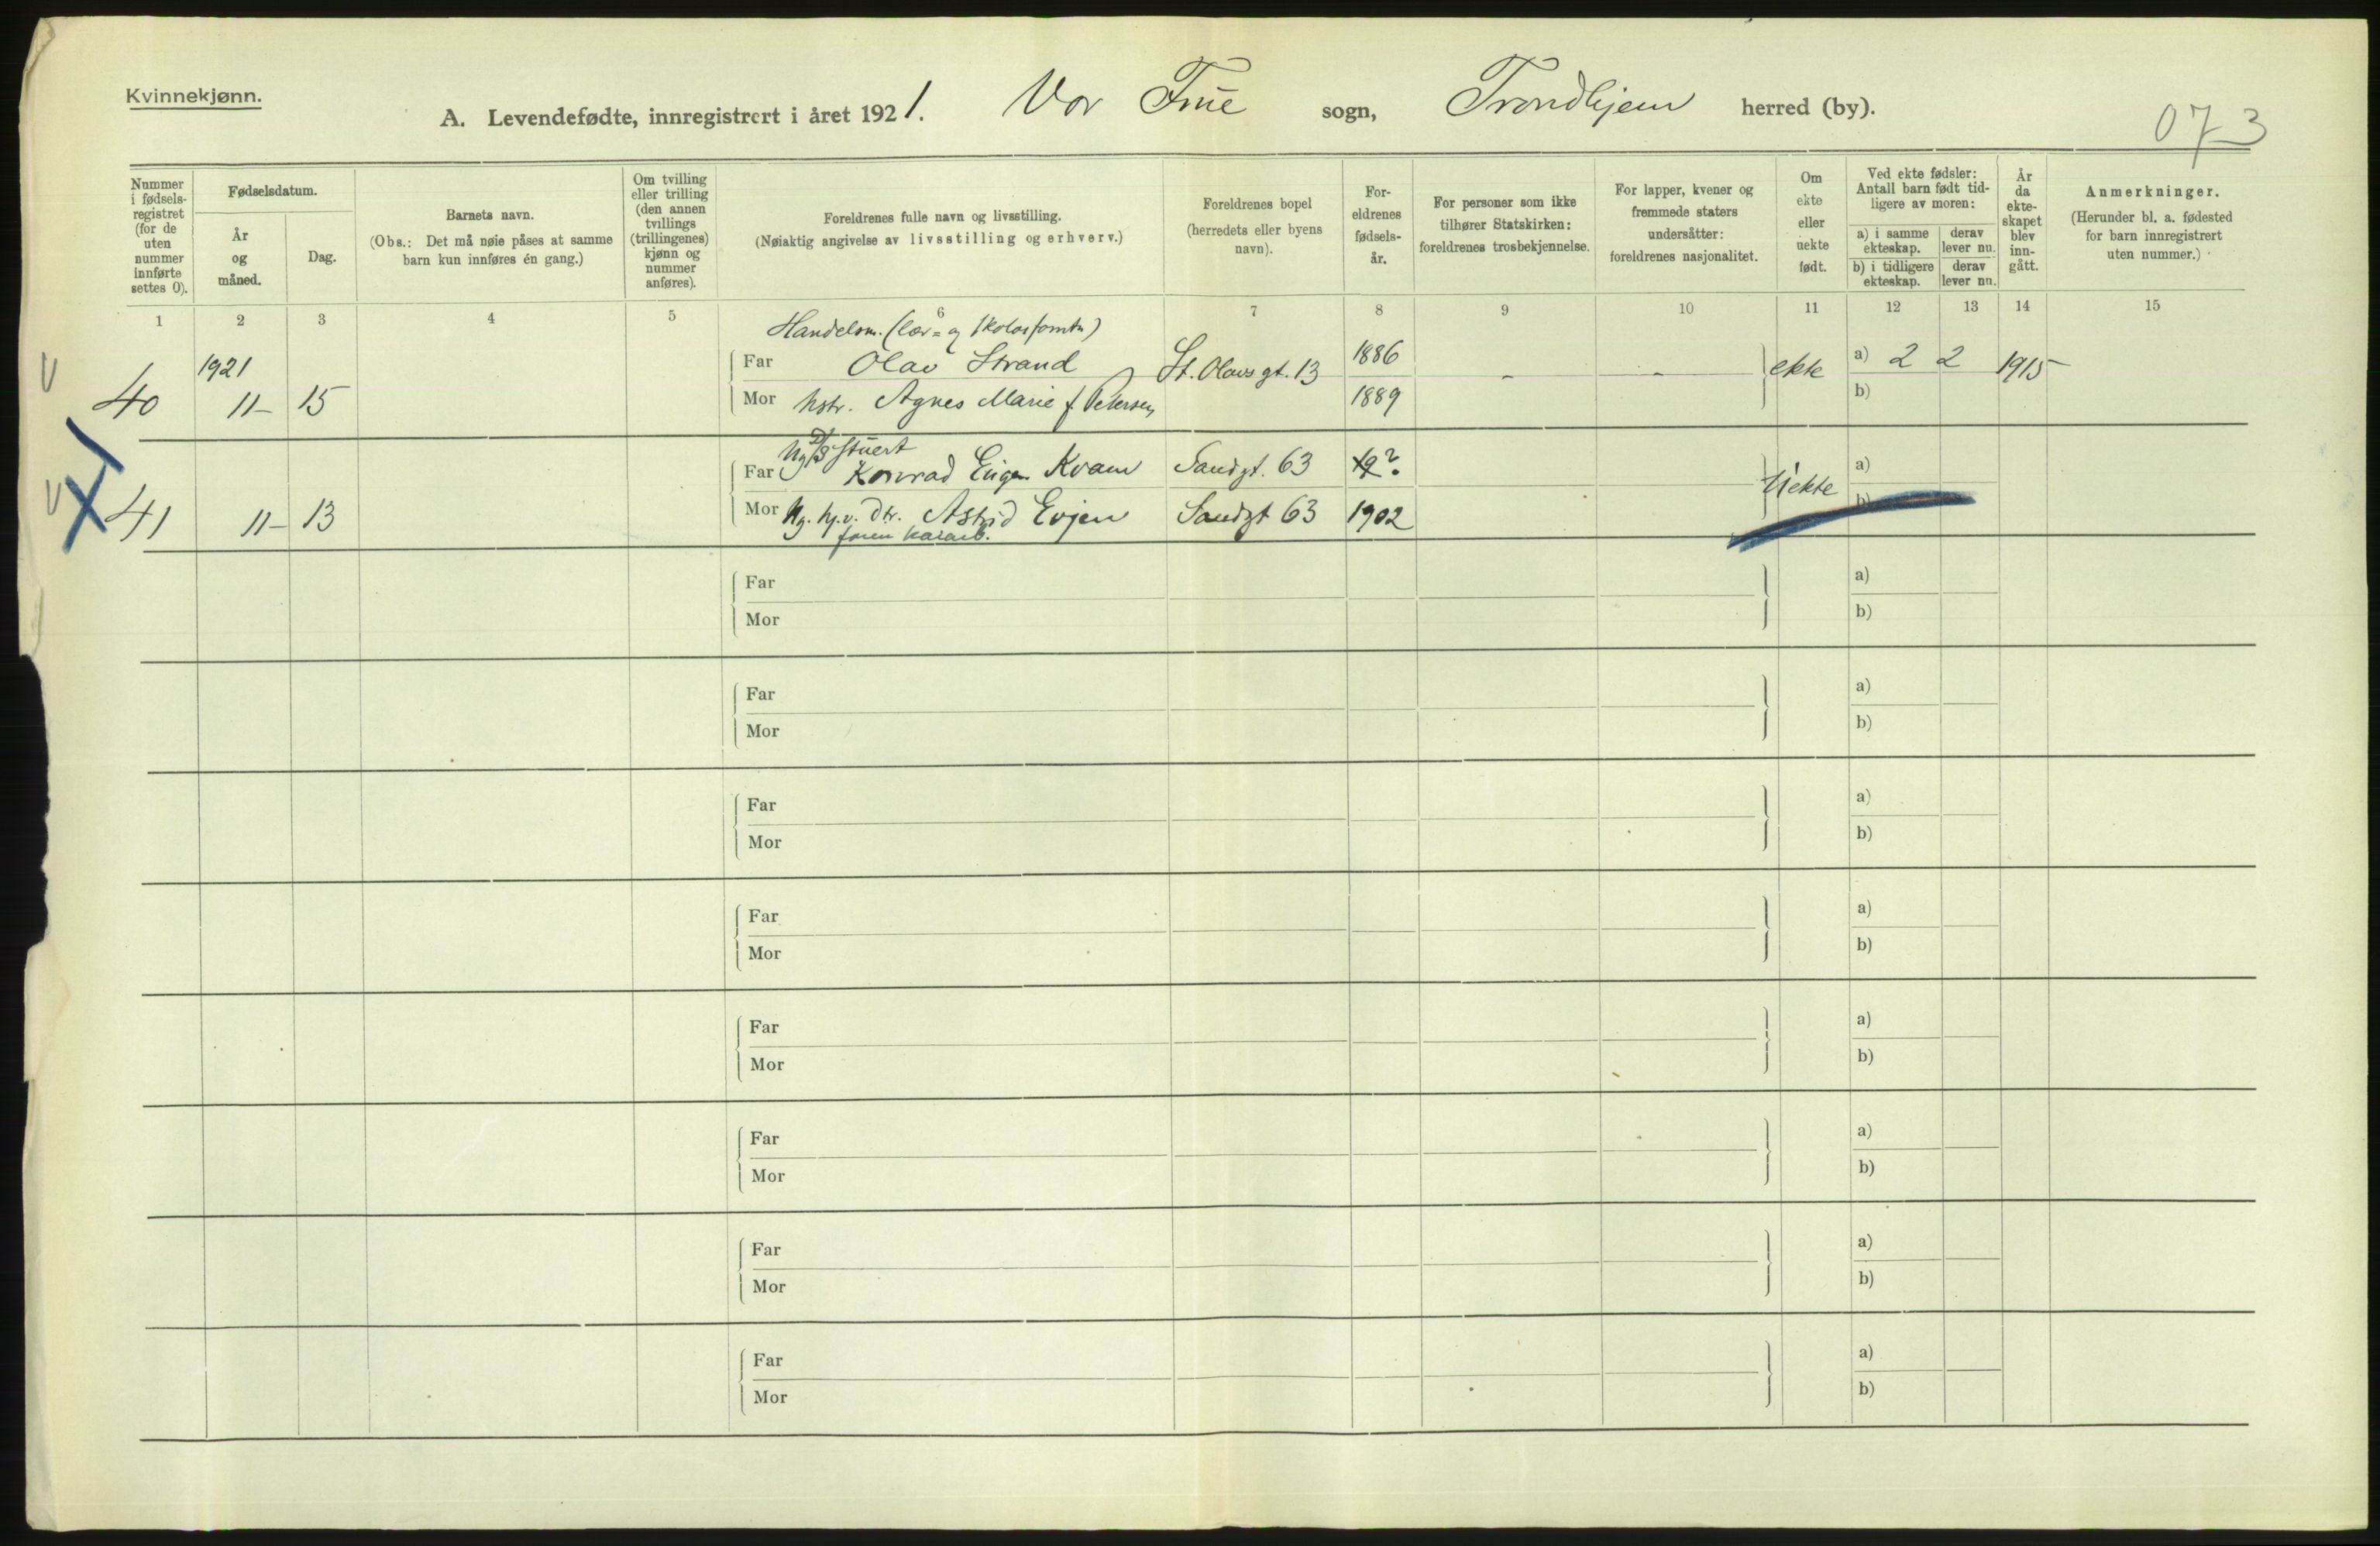 Kvinnekjønn.
A. Levendefødte, innregistrert i året 1921. Vor Frue sogn, Trondhjem herred (by).
073
Nummer i fødsels-registret (for de uten nummer innførte settes 0).
Fødselsdatum.
År og måned.
Dag.
Barnets navn.
(Obs.: Det må nøie påses at samme barn kun innføres én gang.)
Om tvilling eller trilling (den annen tvillings (trillingenes) kjønn og nummer anføres).
Foreldrenes fulle navn og livsstilling.
(Nøiaktig angivelse av livsstilling og erhverv.)
Foreldrenes bopel (herredets eller byens navn).
For-eldrenes fødsels-år.
For personer som ikke tilhører Statskirken: foreldrenes trosbekjennelse.
For lapper, kvener og fremmede staters undersåtter: foreldrenes nasjonalitet.
Om ekte eller uekte født.
Ved ekte fødsler: Antall barn født tid-ligere av moren:
a) i samme ekteskap. derav lever nu.
b) i tidligere ekteskap. derav lever nu.
År da ekte-skapet blev inn-gått.
Anmerkninger.
(Herunder bl. a. fødested for barn innregistrert uten nummer.)
1 2 3 4 5 6 7 8 9 10 11 12 13 14 15
Handelsm. (lær= og
1921 Far Olav Strand St. Olavs gt. 13 1886 - - ekte a) 2 2 1915
V 40 11- 15 Mor hstr. Agnes Marie f. Petersen 1889 b)
Ug. D/S stuert
Far Konrad Eugen Kvam Sandgt. 63 ? Uekte a)
V X 41 11- 13 Mor Ug. hj.v. dtr. Astrid Evjen Sandgt 63 1902 b)
Far a)
Mor b)
Far a)
Mor b)
Far a)
Mor b)
Far a)
Mor b)
Far a)
Mor b)
Far a)
Mor b)
Far a)
Mor b)
Far a)
Mor b)